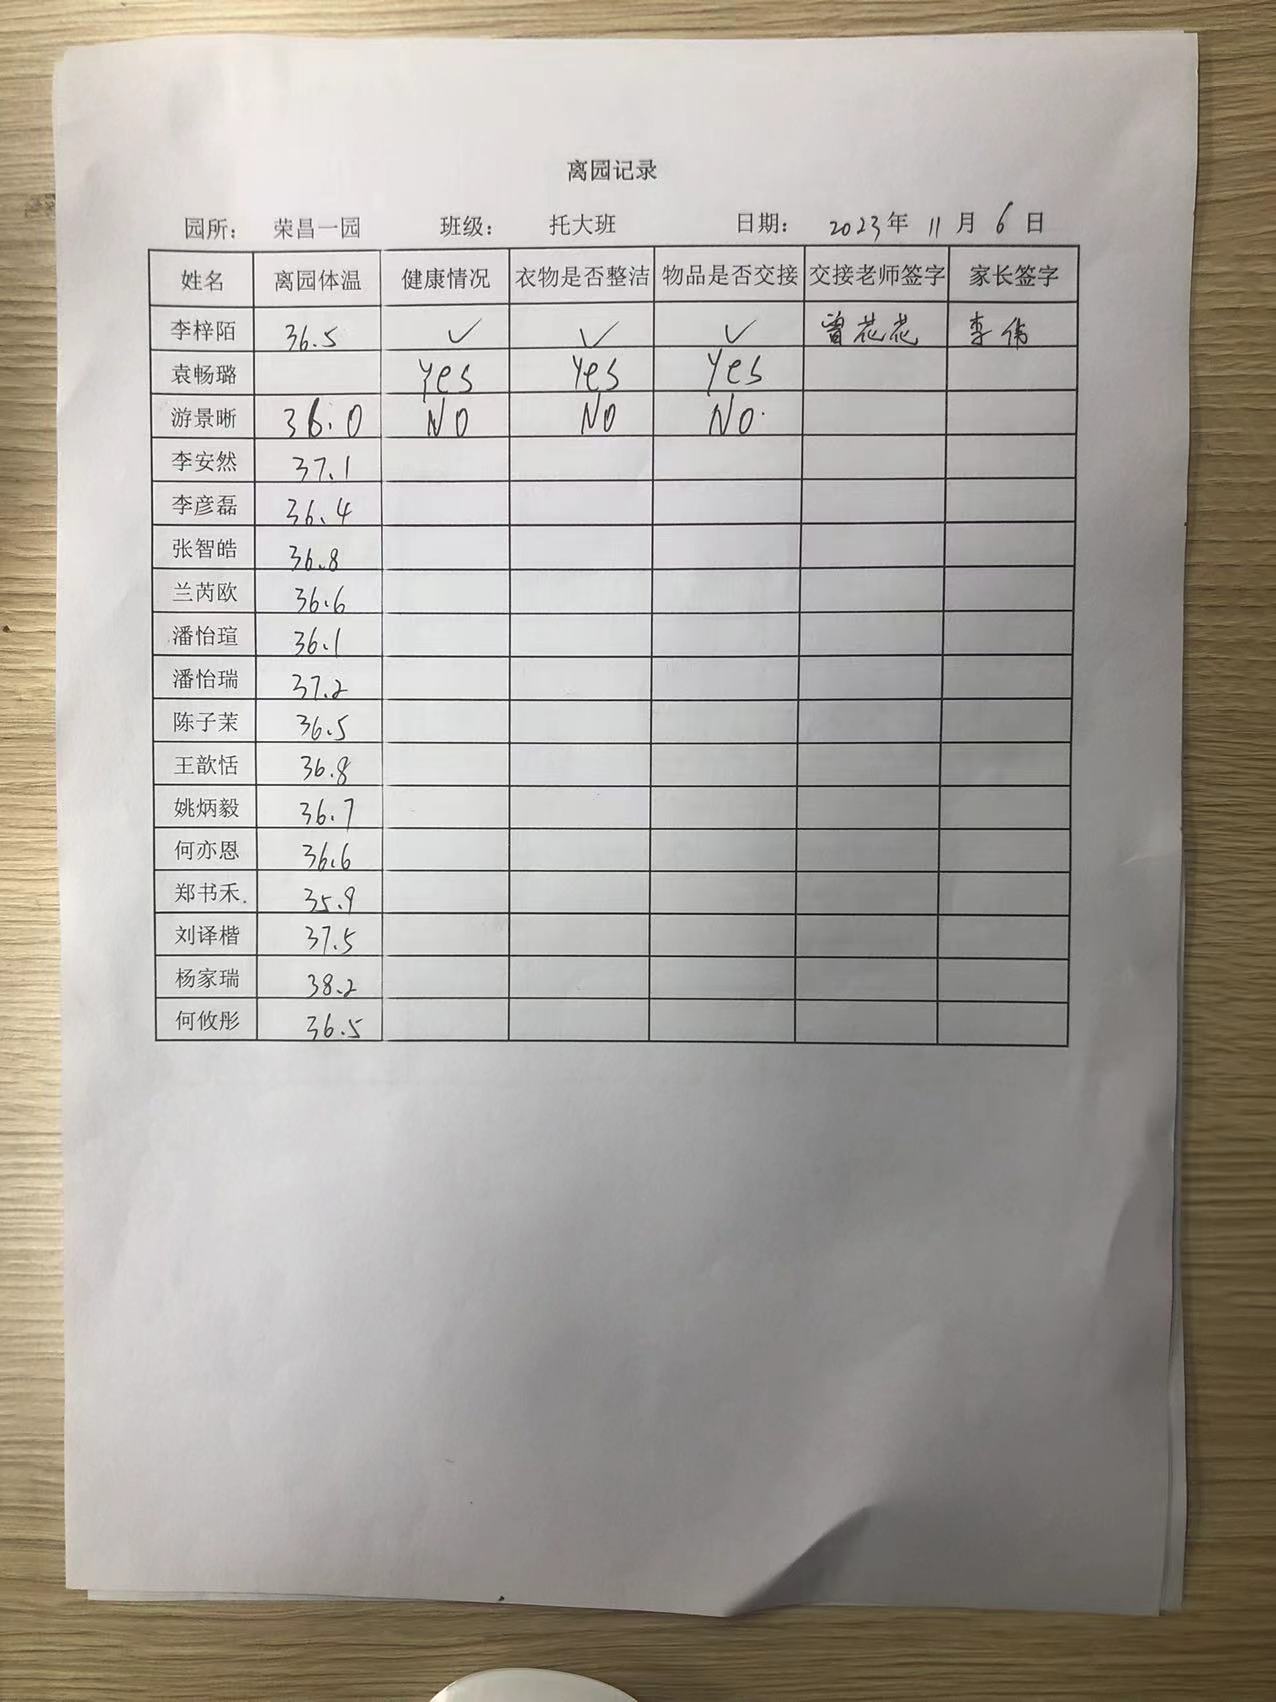 离园记录
园所： 荣昌一园 班级： 托大班 日期： 2023年 11月 6日
姓名 离园体温 健康情况 衣物是否整洁 物品是否交接 交接老师签字 家长签字
李梓陌 36.5 ✓ ✓ ✓ 曾花花 李伟
袁畅璐 Yes Yes Yes
游景晰 36.0 NO NO NO.
李安然 37.1
李彦磊 36.4
张智皓 36.8
兰芮欧 36.6
潘怡瑄 36.1
潘怡瑞 37.2
陈子茉 36.5
王歆恬 36.8
姚炳毅 36.7
何亦恩 36.6
郑书禾. 35.9
刘译楷 37.5
杨家瑞 38.2
何攸彤 36.5